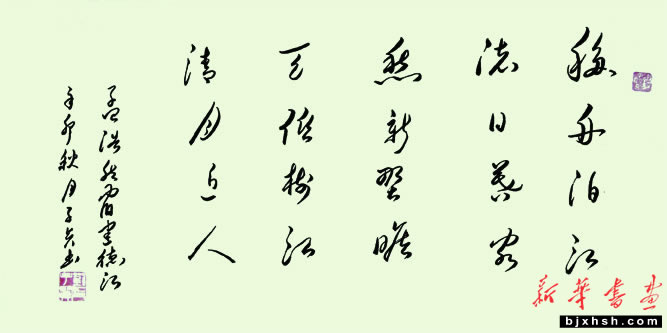 移舟泊江
渚日暮客
愁新野曠
天低树江
清月近人
孟浩然宿建德江
辛卯秋月子书
新華書画
bjxhsh.com